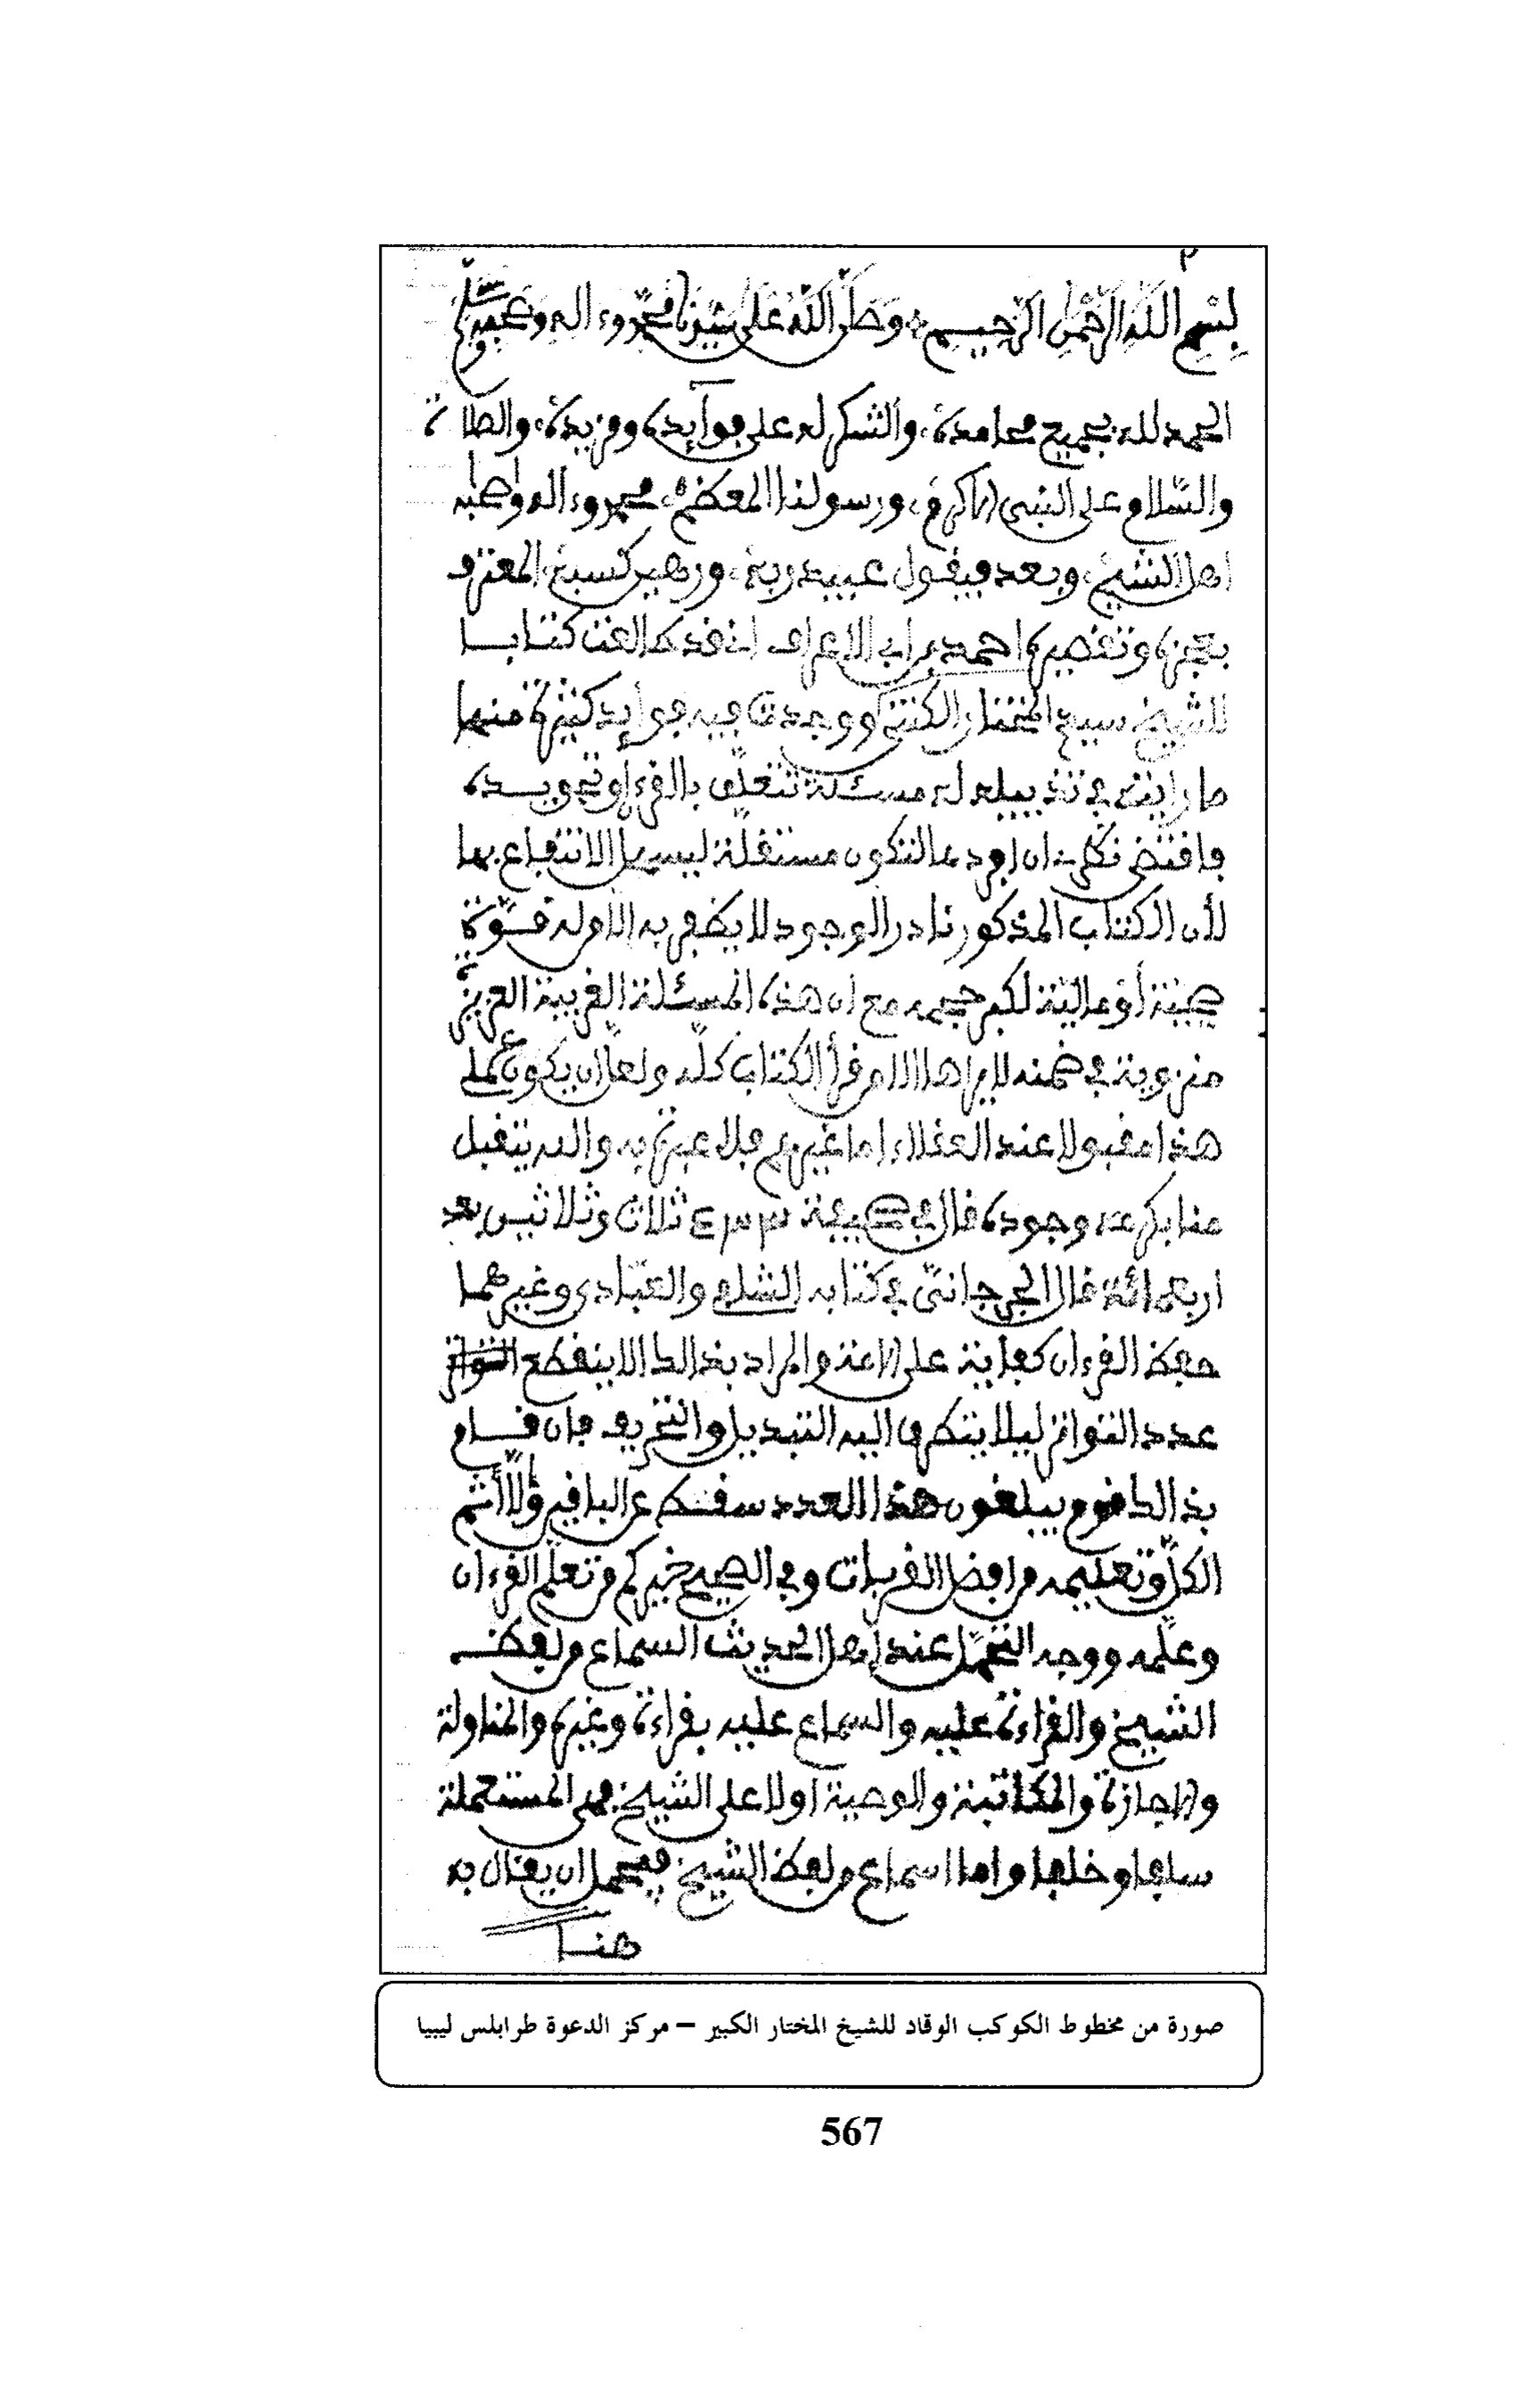 ٢
بِسْمِ اللَّهِ الرَّحْمَٰنِ الرَّحِيمِ وَصَلَّى اللَّهُ عَلَى سَيِّدِنَا مُحَمَّدٍ وءاله وصحبه وسلم
الحمد لله بجميع محامده، والشكر له على فوآيده ومزيده، والصلاة
والسّلام على النبيّ الاكرم، ورسولنا المعظم، محمد وءاله واصحابه
اهل الشيم، وبعد فيقول عبيد ربه، ورهين كسبه، المعترف
بعجزه وتقصيره احمد بن ابي الاعراف اني قد طالعت كتابا
للشيخ سيدي المختار الكنتي ووجدت فيه فوايد كثيرة منها
ما رايته في تذييله له مسئلة تتعلّق بالقرءان وتجويده
فاقتضى نظري ان افردها لتكون مستقلّة ليسهل الانتفاع بها
لأن الكتاب المذكور نادر الوجود لا يظفر به الا من له قوّة
أو مالية لكبر حجمه مع ان هذه المسئلة الغريبة العزيزة
منزوية في ضمنه لا يراها الا من قرأ الكتاب كلّه ولعل ان يكون عملي
هذا مقبولا عند العقلاء اما غيرهم فلا عبرة به والله يتقبل
منا بكرمه وجوده قال في صحيفة ٤٣٣ ثلاث وثلاثين بعد
اربعمائة قال الجرجانيّ في كتابه الشلم والعبّادي وغيرهما
حفظ القرءان كفاية على الامة والمراد بذالك الا ينقطع التواتر
عدد التواتر ليلا يتطرق اليه التبديل والتحريف فان قام
بذالك قوم يبلغون هذا العدد سقط عن الباقين وإلّا أثم
الكلّ وتعليمه من افضل القربات وفي الصحيح خيركم من تعلّم القرءان
وعلّمه ووجه التحمّل عند أهل الحديث السماع من لفظ
الشيخ والقراءة عليه والسماع عليه بقراءة غيره والمناولة
والاجازة والمكاتبة والوصية اولا على الشيخ فهي المستعملة
سلفا وخلفا واما السماع من لفظ الشيخ فيحمل ان يقال به
هنا
صورة من مخطوط الكوكب الوقاد للشيخ المختار الكبير – مركز الدعوة طرابلس ليبيا
567